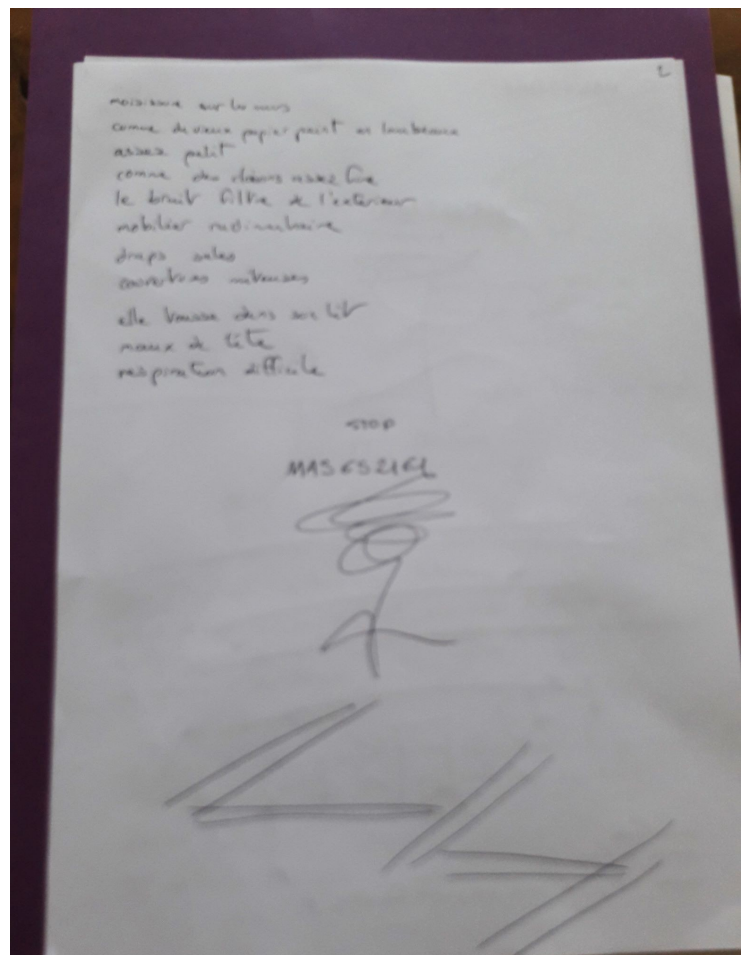 2
moisissure sur les murs
comme de vieux papier peint en lambeaux
assez petit
comme des cloisons assez fine
le bruit filtre de l'exterieur
mobilier rudimentaire
draps sales
couvertures miteuses
elle tousse dans son lit
maux de tête
respiration difficile
STOP